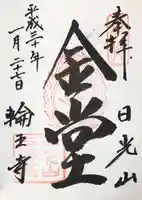 奉拝
日光山
金堂
平成三十年
一月二十七日
輪王寺